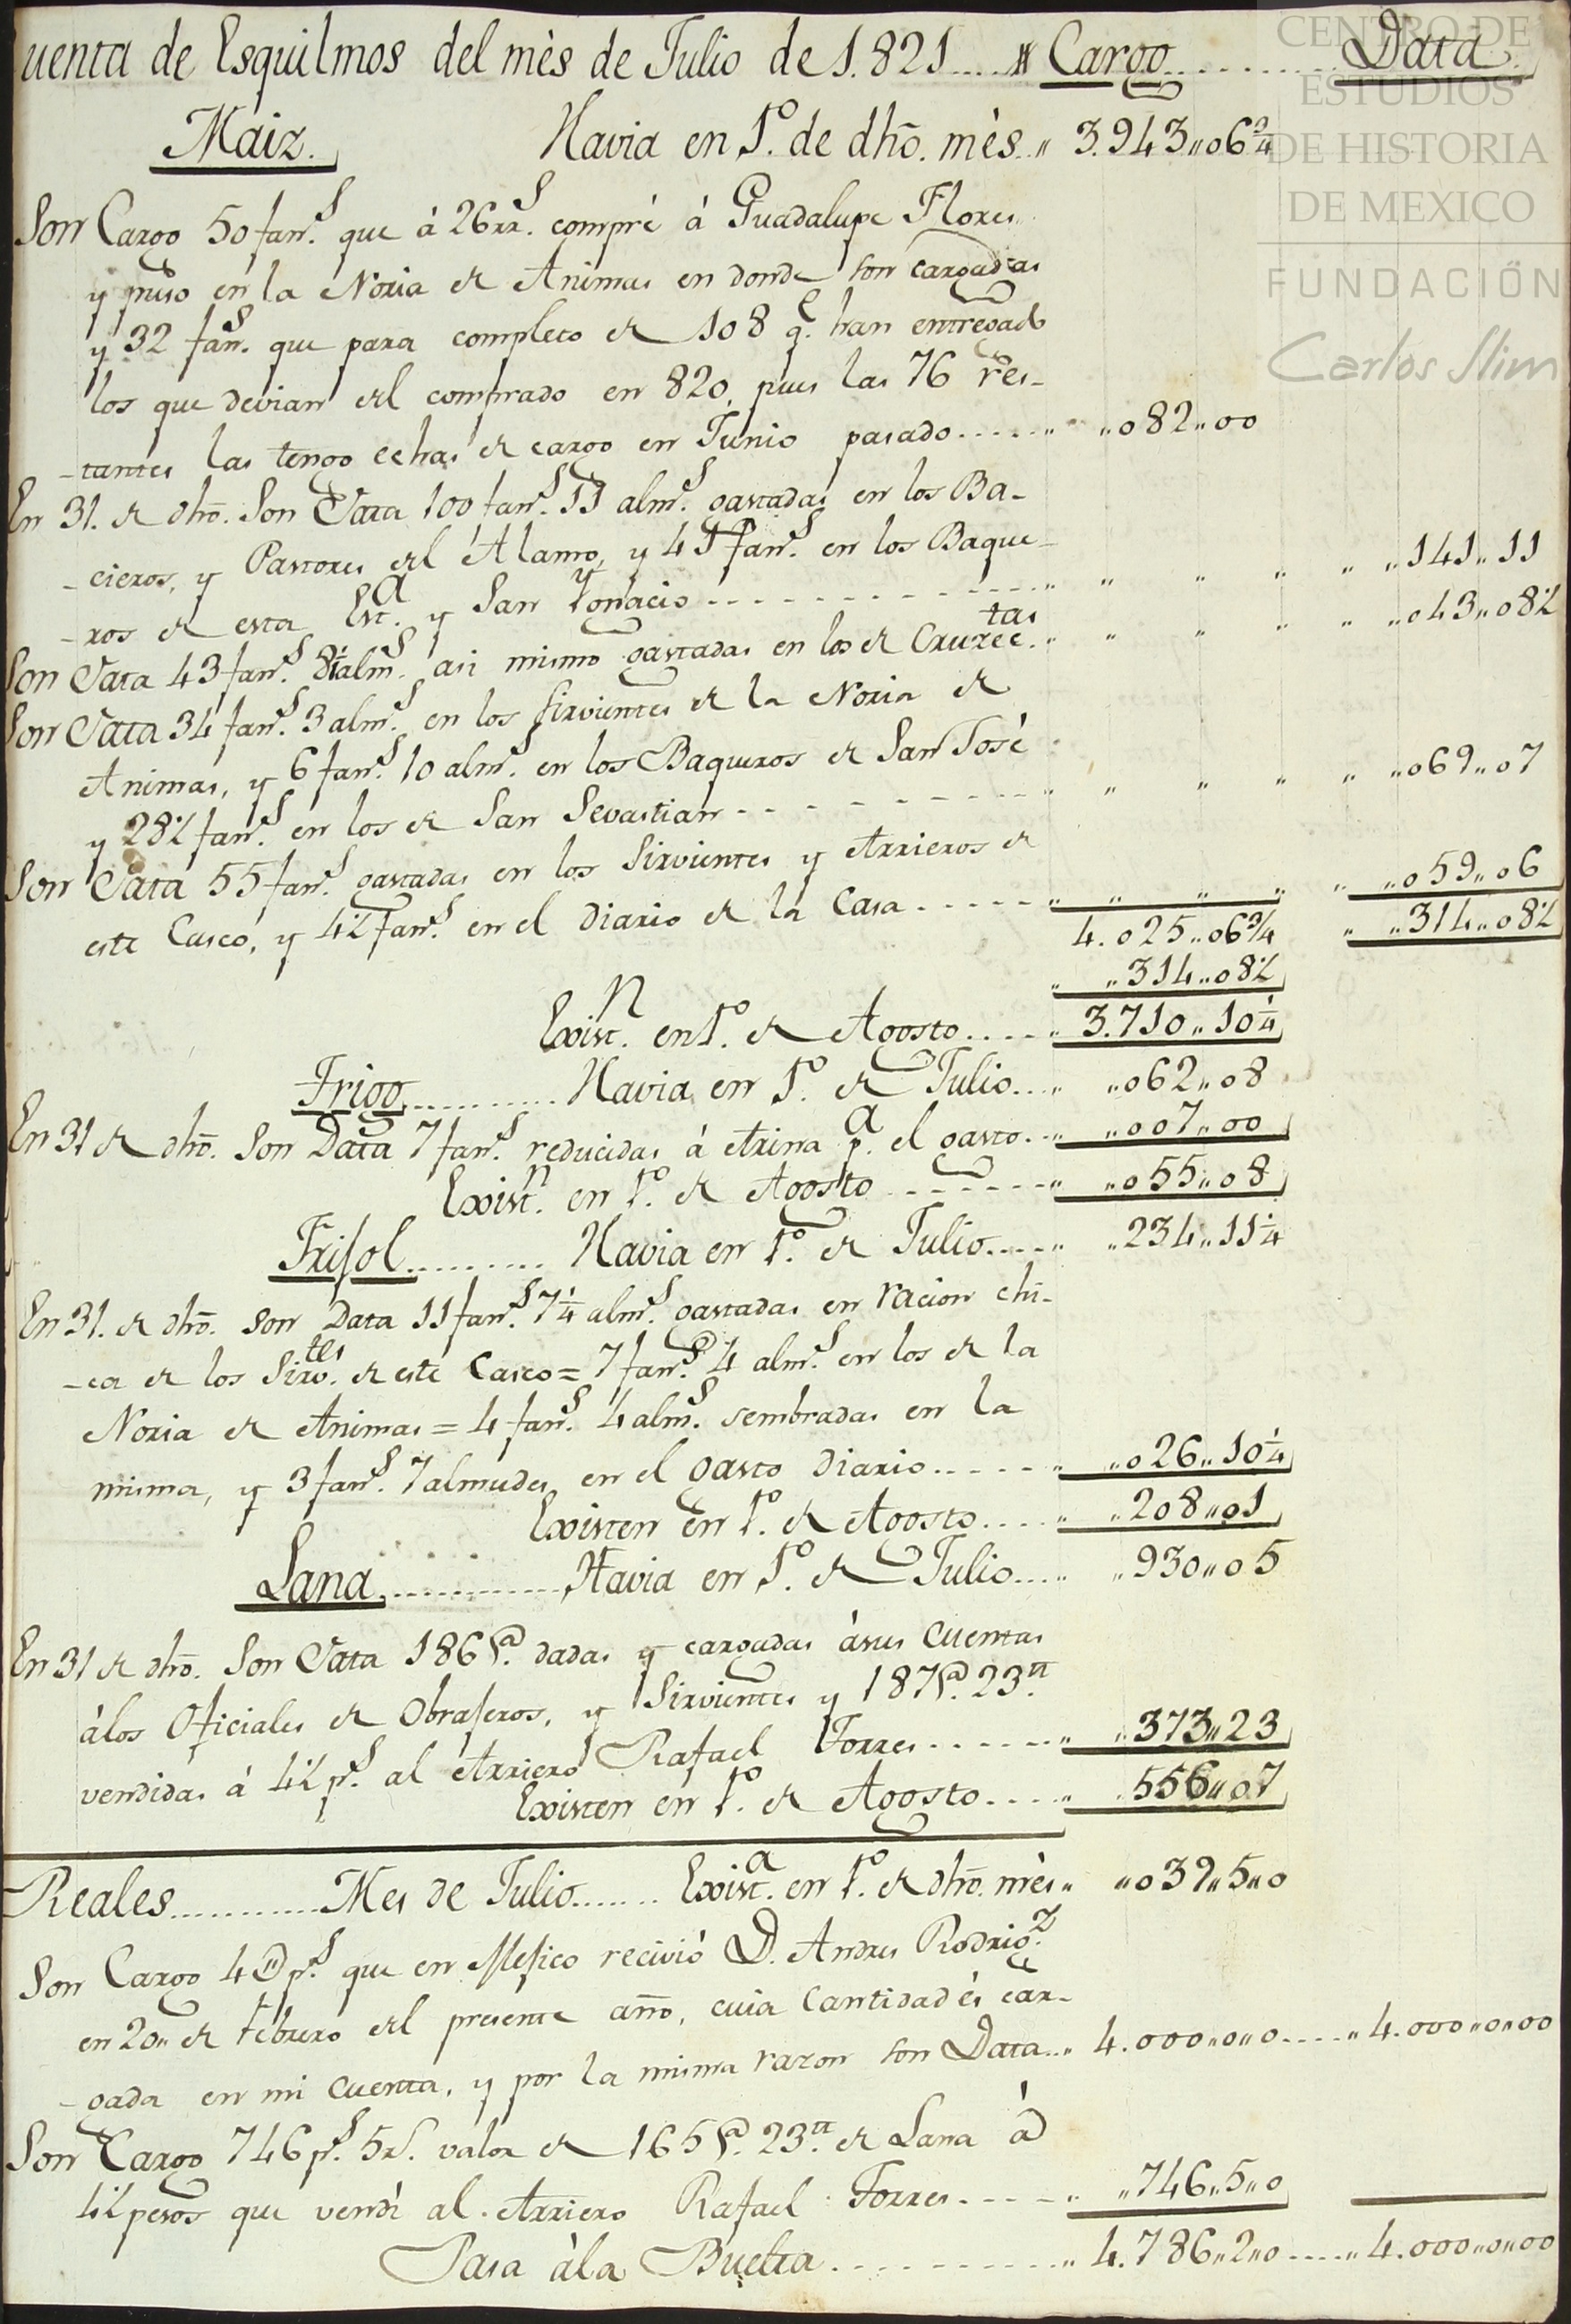 uenta de Esquilmos del mès de Julio de 1.821..... Cargo.......... Data
CENTRO DE
ESTUDIOS
DE HISTORIA
DE MEXICO
FUNDACIÓN
Carlos Slim
Maiz. Havia en 1º. de dhõ. mès.. „ 3.943„06¾
Son Cargo 50 fanˢ. que á 26 rrˢ. compré á Guadalupe Flores
y puso en la Noria de Animas en donde son cargadas
y 32 fanˢ. que para completo de 108 q.ᵉ han entregado
los que devian del comprado en 820, pues las 76 res-
-tantes las tengo echas de cargo en Junio pasado..... „ „082„00
En 31. de dhõ. Son Data 100 fanˢ. 11 almˢ. gastadas en los Ba-
-cieros, y Pastores del Alamo, y 41 fanˢ. en los Baque-
-ros de esta Estª. y San Ygnacio.............. „ „ „ „ „ „141„11
Son Data 43 fanˢ. 8½ almˢ. asi mismo gastadas en los de Cruzectas. „ „ „ „ „ „043„08½
Son Data 34 fanˢ. 3 almˢ. en los sirvientes de la Noria de
Animas, y 6 fanˢ. 10 almˢ. en los Baqueros de San José
y 28½ fanˢ. en los de San Sevastian............ „ „ „ „ „ „069„07
Son Data 55 fanˢ. gastadas en los Sirvientes y Arrieros de
este Casco, y 4½ fanˢ. en el diario de la Casa...... „ „ „ „ „ „059„06
4.025„06¾ „ „314„08½
„ „314„08½
Existⁿ. en 1º. de Agosto..... „ 3.710„10¼
Trigo.......... Havia en 1º. de Julio.... „ „062„08
En 31 de dhõ. Son Data 7 fanˢ. reducidas á Arina p.ª el gasto... „ „007„00
Existⁿ. en 1º. de Agosto........ „ „055„08
Frisol.......... Havia en 1º. de Julio..... „ „234„11¼
En 31. de dhõ. son Data 11 fanˢ. 7¼ almˢ. gastadas en racion chi-
-ca de los Sirv.ᵗᵉˢ de este Casco = 7 fanˢ. 4 almˢ. en los de la
Noria de Animas = 4 fanˢ. 4 almˢ. sembradas en la
misma, y 3 fanˢ. 7 almudes en el gasto diario...... „ „026„10¼
Existen en 1º. de Agosto..... „ „208„01
Lana............ Havia en 1º. de Julio..... „ „930„05
En 31 de dhõ. Son Data 186 @. dadas y cargadas á sus cuentas
álos Oficiales de Obrajeros, y Sirvientes y 187 @. 23 tt.
vendidas á 4½ pˢ. al Arriero Rafael Torres....... „ „373„23
Existen en 1º. de Agosto..... „ 556„07
Reales............ Mes de Julio....... Existª. en 1º. de dhõ. mès „ „039„5„0
Son Cargo 4 @ pˢ. que en Mejico recivió D. Andres Rodrigᶻ.
en 20„ de Febrero del presente año, cuia cantidad és car-
-gada en mi cuenta, y por la misma razon son Data... 4.000„0„0..... „ 4.000„0„00
Son Cargo 746 pˢ. 5 rˢ. valor de 165 @. 23 tt. de Lana á
4½ pesos que vendi al Arriero Rafael Torres...... „ „746„5„0
Pasa ála Buelta................ „ 4.786„2„0..... „ 4.000„0„00